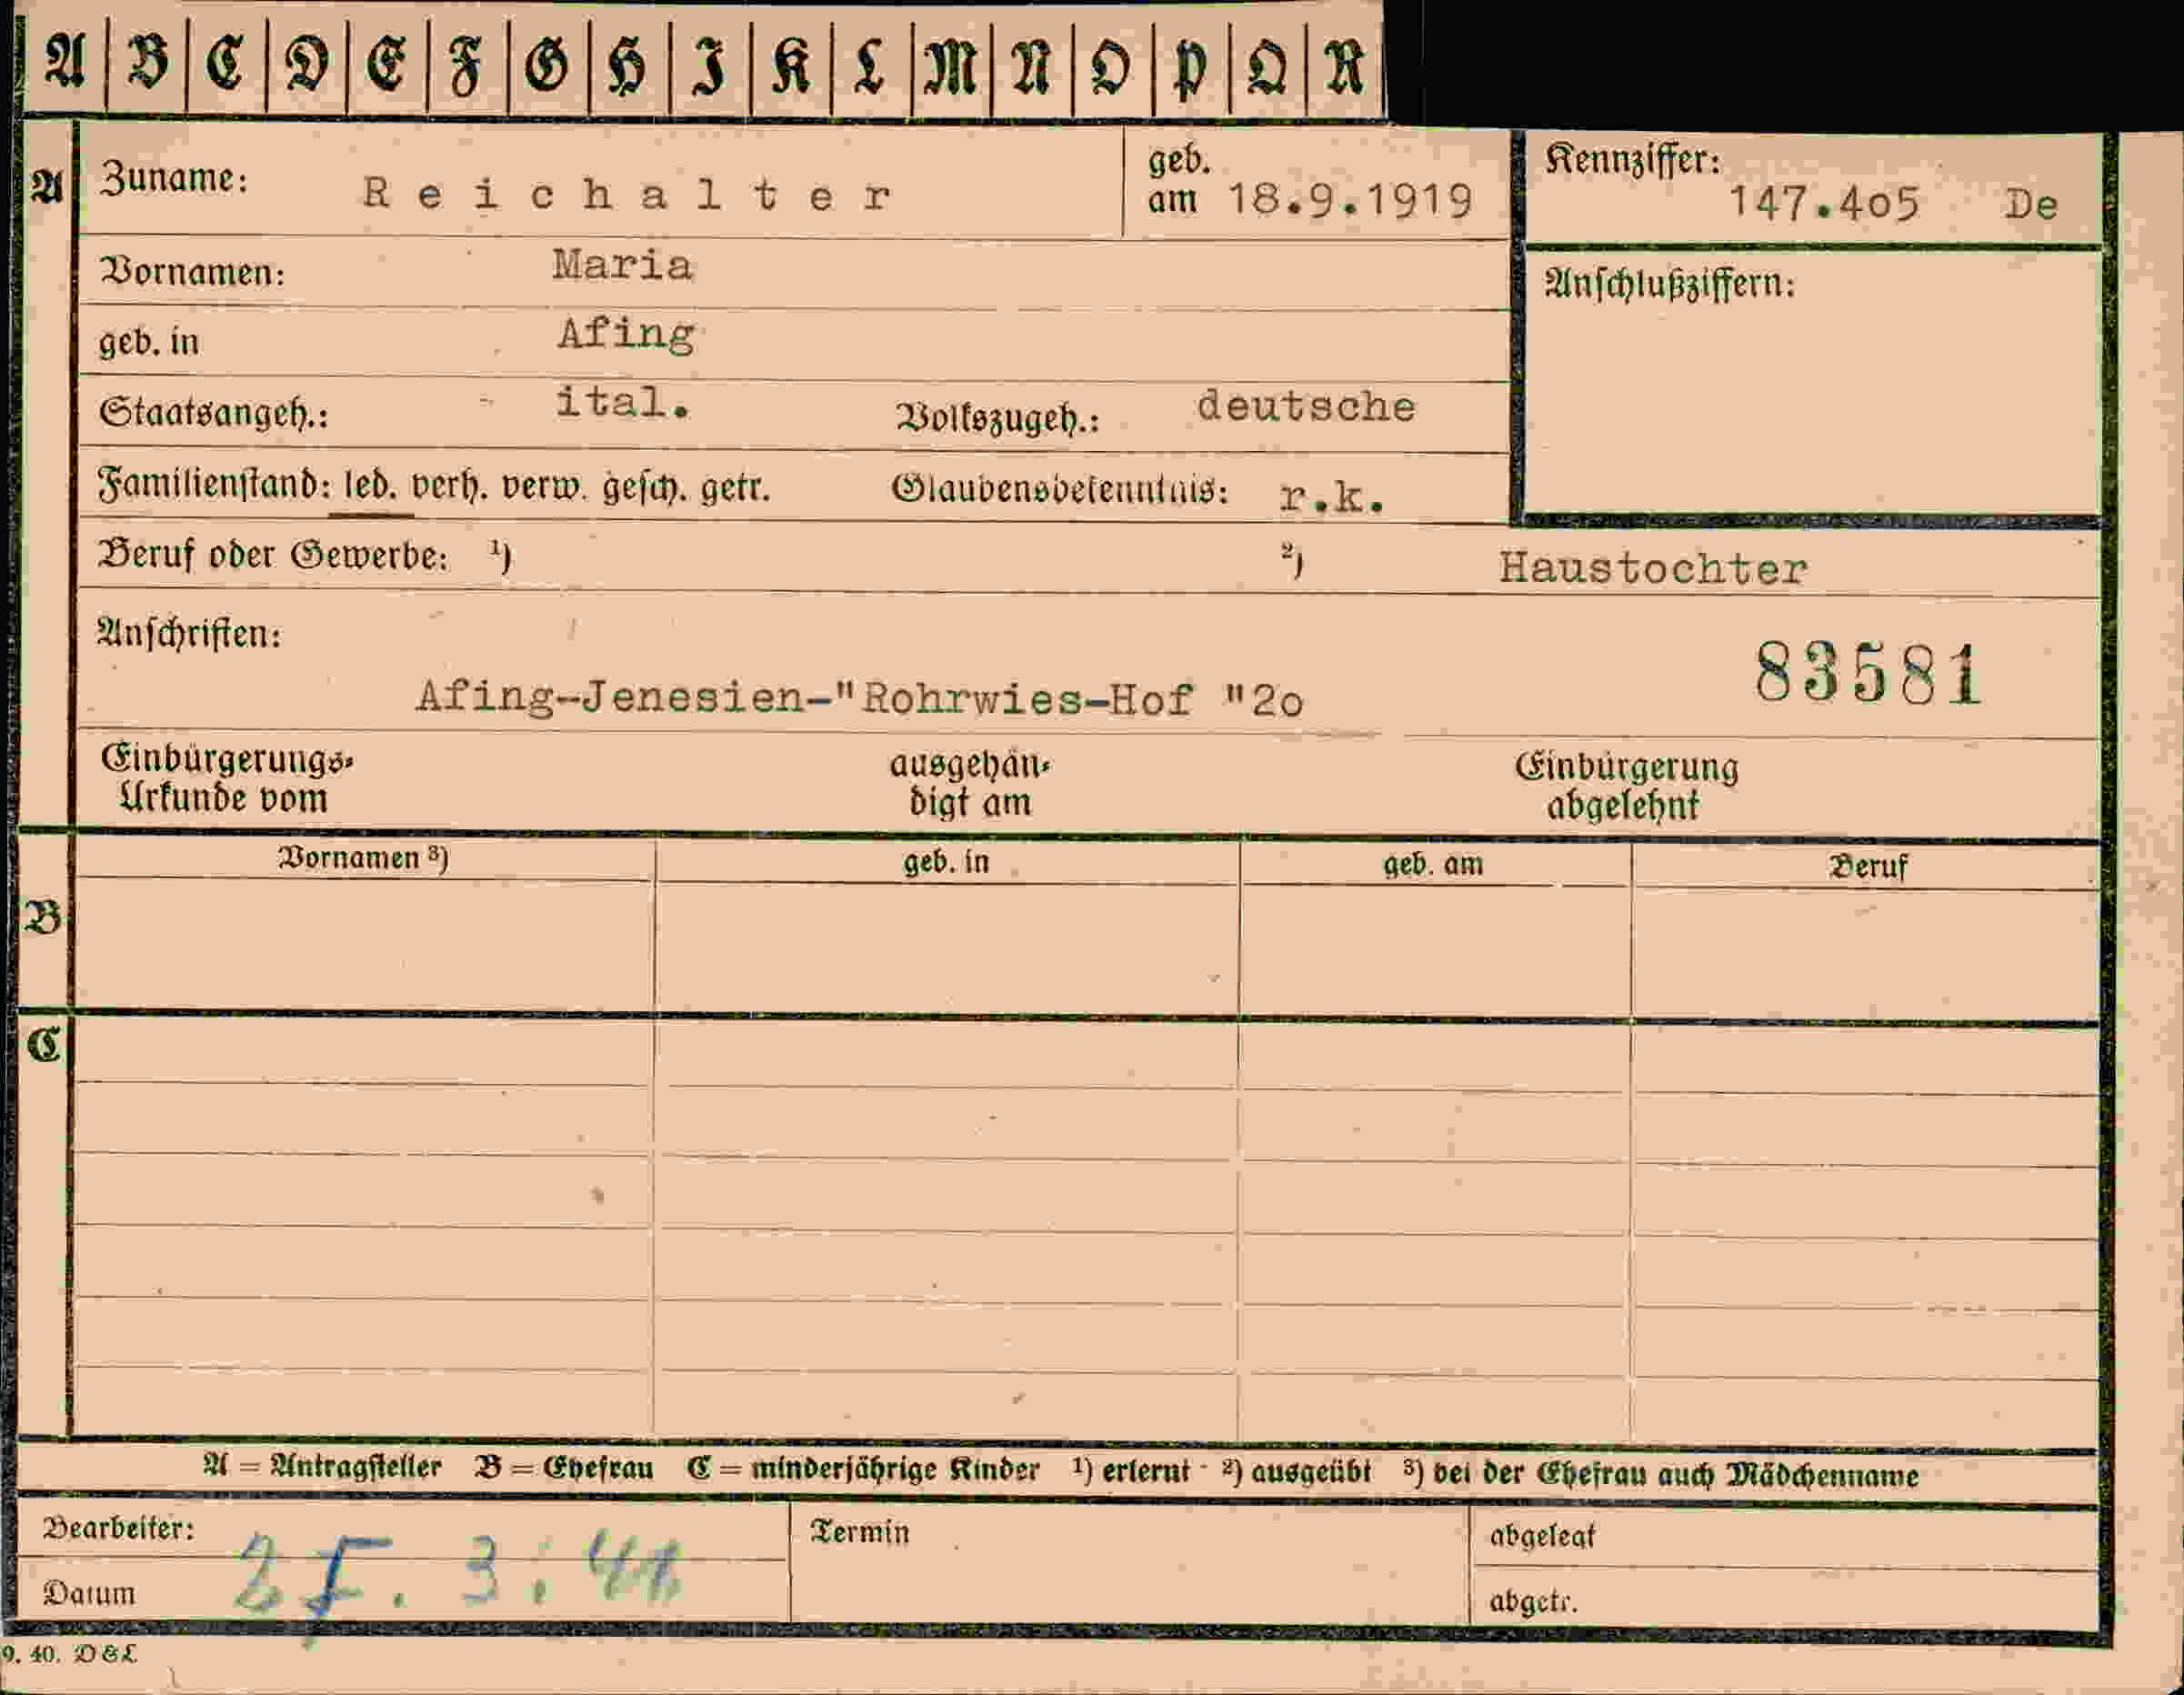 A B C D E F G H I K L M N O P Q R
A
Zuname: Reichalter geb. am 18.9.1919 Kennziffer: 147.4o5 De
Vornamen: Maria
Anschlußziffern:
geb. in Afing
Staatsangeh.: ital. Volkszugeh.: deutsche
Familienstand: led. verh. verw. gesch. getr. Glaubensbekenntnis: r.k.
Beruf oder Gewerbe: ¹) ²) Haustochter
Anschriften:
83581
Afing-Jenesien-"Rohrwies-Hof "2o
Einbürgerungs- ausgehän- Einbürgerung
Urkunde vom digt am abgelehnt
Vornamen ³) geb. in geb. am Beruf
B
C
A = Antragsteller B = Ehefrau C = minderjährige Kinder ¹) erlernt - ²) ausgeübt ³) bei der Ehefrau auch Mädchenname
Bearbeiter: Termin abgelegt
Datum 3. 41 abgetr.
9. 40. D & L